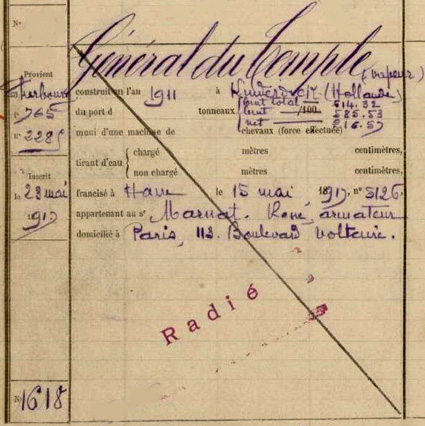 N°
Général du Temple
(vapeur)
Provient
Cherbourg
n° 765
n° 2285
construit en l'an 1911 à (Hollande)
du port d tonneaux, brut total 514.32
brut /100 585.53
net 216.57
muni d'une machine de chevaux (force effectuée)
tirant d'eau { chargé mètres centimètres,
non chargé mètres centimètres,
Inscrit
le 28 mai
1917
francisé à Havre le 15 mai 1917. n° 5126.
appartenant au sr Marnat, René, armateur
domicilié à Paris, 112. Boulevard Voltaire.
Radié
N° 1618